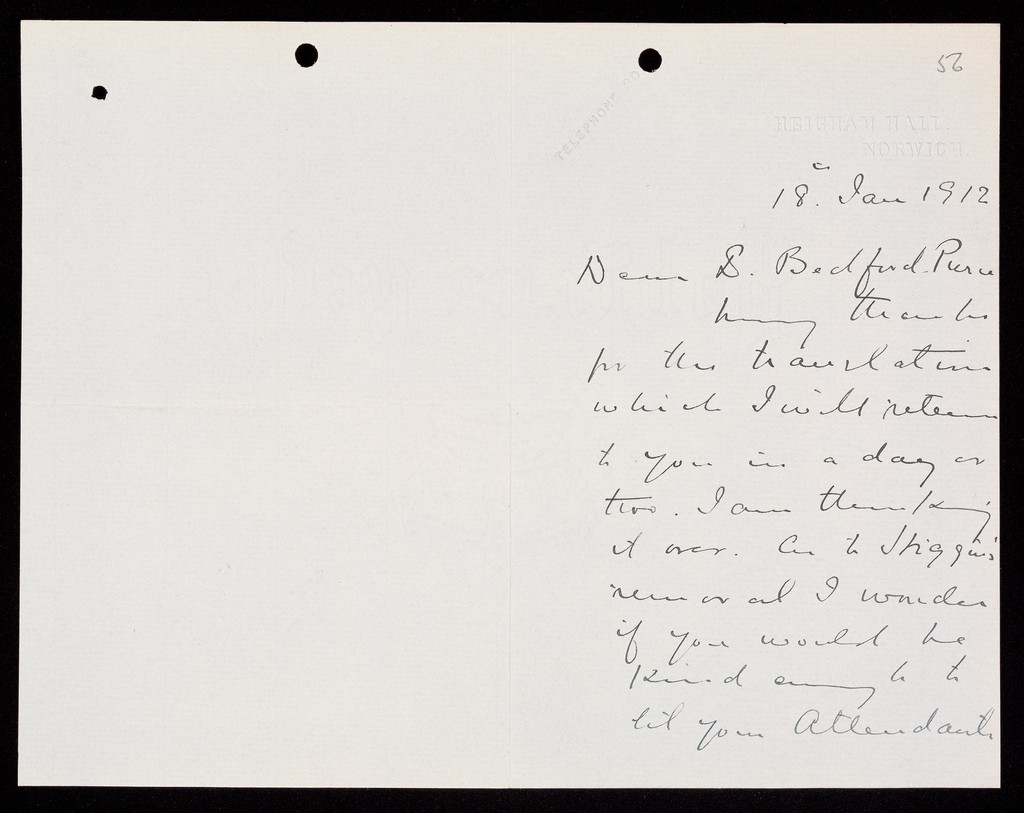 56
TELEPHONE NO
HEIGHAM HALL.
NORWICH.
18th Jan 1912
Dear Dr. Bedford-Pierce
Many thanks
for the translation
which I will return
to you in a day or
two. I am thinking
it over. As to
removal I wonder
if you would be
kind enough to
let your Attendants